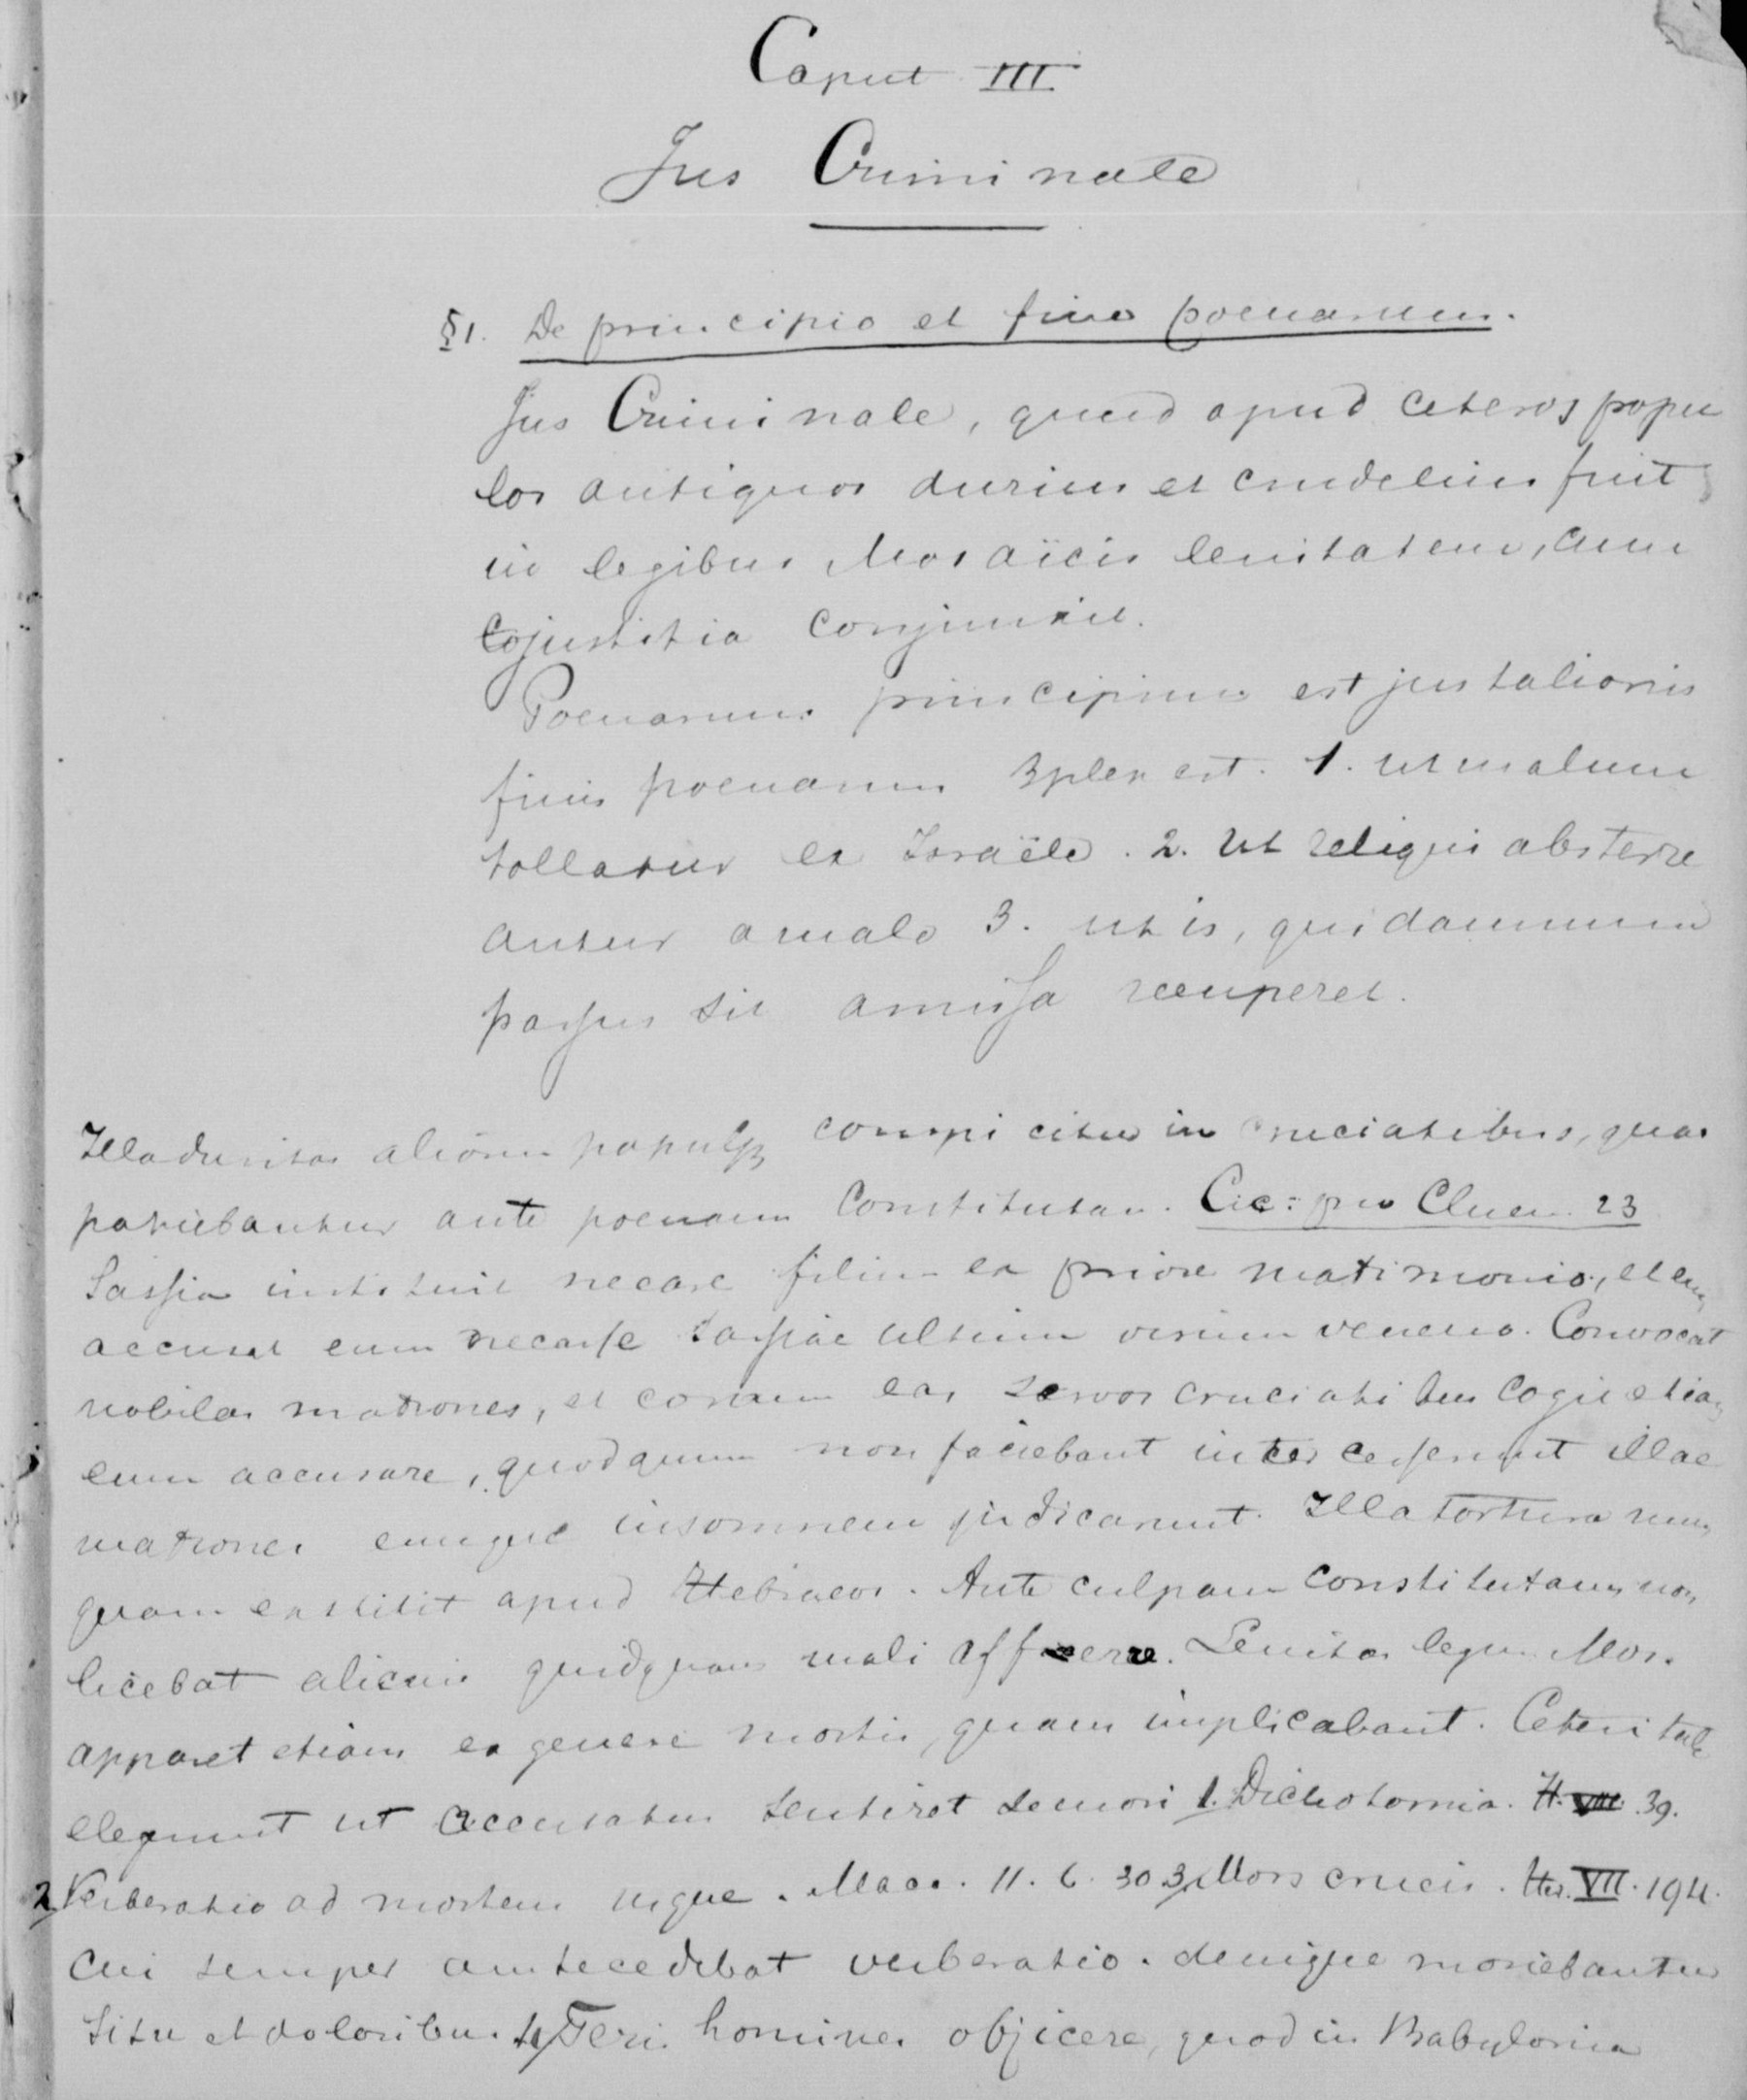 Caput III
Jus Criminale
§1. De principio et fine poenarum.
Jus Criminale, quod apud ceteros popu
los antiquos durius et crudelius fuit
in legibus Mosaïcis lenitatem, cum
justitia conjunxit.
Poenarum principium est jus talionis
finis poenarum 3plex est. 1. ut malum
tollatur ex Israële. 2. Ut reliqui absterre
antur a malo 3. ut is, qui damnum
passus sit amissa recuperet.
Illa duritas aliorum conspicitur in cruciatibus, quas
patiebantur ante poenam constitutam. Cic: pro Cluen. 23
Sassia instituit necare filium ex priore matrimonio, et
accusat eum necasse Sassiae ultimum virum veneno. Convocat
nobiles matrones, et coram eas servos cruciatibus cogit etiam
eum accusare, quod quum non faciebant intercesserunt illae
matrones eumque insomnem judicarunt. Illa tortura num
quam exstitit apud Hebraeos. Ante culpam constitutam non
licebat alicui quidquam mali afferre. Lenitas legum Mos.
apparet etiam ex genere mortis, quam implicabant. Ceteri tale
elegerunt ut accusatus sentiret se mori 1. Dichotomia. H. VIII. 39.
2 Verberatio ad mortem usque. Macc. 11. 6. 30 3. Mors crucis. Her. VII. 194.
cui semper antecedebat verberatio. denique moriebantur
siti et doloribus. 4 Feris homines objicere, quod in Babylonia